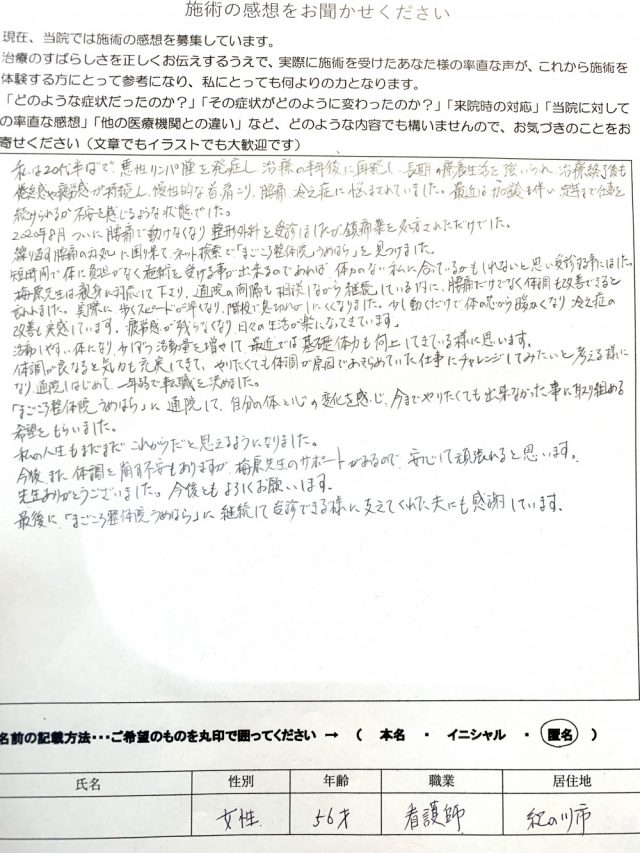 施術の感想をお聞かせください
現在、当院では施術の感想を募集しています。
治療のすばらしさを正しくお伝えするうえで、実際に施術を受けたあなた様の率直な声が、これから施術を
体験する方にとって参考になり、私にとっても何よりの力となります。
「どのような症状だったのか？」「その症状がどのように変わったのか？」「来院時の対応」「当院に対して
の率直な感想」「他の医療機関との違い」など、どのような内容でも構いませんので、お気づきのことをお
寄せください（文章でもイラストでも大歓迎です）
私は20代半ばで悪性リンパ腫を発症し、治療の半年後に再発し、長期の療養生活を強いられ、治療終了後も
倦怠感や疲労感が持続し、慢性的な首、肩こり、腰痛、冷え症に悩まされていました。最近は加齢も伴い定年まで仕事を
続けられるか不安を感じるような状態でした。
2020年8月ついに腰痛で動けなくなり整形外科を受診しましたが鎮痛薬を処方されただけでした。
繰り返す腰痛の対処に困り果て、ネット検索で「まごころ整体院うめはら」を見つけました。
短時間で体に負担がなく施術を受ける事が出来るのであれば、体力のない私に合っているかもしれないと思い受診する事にしました。
梅原先生は親身に対応して下さり、通院の間隔も相談しながら継続している内に、腰痛だけでなく体調も改善できると
言われました。実際に歩くスピードが早くなり、階段で息切れがしにくくなりました。少し動くだけで体の芯から暖かくなり冷え症の
改善も実感しています。疲労感が残らなくなり日々の生活が楽になってきています。
活動しやすい体になり、少しずつ活動量を増やして、最近では基礎体力も向上してきている様に思います。
体調が良くなると気力も充実してきて、やりたくても体調が原因であきらめていた仕事にチャレンジしてみたいと考える様に
なり通院しはじめて一年弱で転職を決めました。
「まごころ整体院うめはら」に通院して、自分の体と心の変化を感じ、今までやりたくても出来なかった事に取り組める
希望をもらいました。
私の人生もまだまだこれからだと思えるようになりました。
今後、また体調を崩す不安もありますが、梅原先生のサポートがあるので、安心して頑張れると思います。
先生ありがとうございました。今後ともよろしくお願いします。
最後に、「まごころ整体院うめはら」に継続して受診できる様に支えてくれた夫にも感謝しています。
名前の記載方法・・・ご希望のものを丸印で囲ってください → （ 本名 ・ イニシャル ・ 匿名 ）
氏名 性別 年齢 職業 居住地
女性 56才 看護師 紀の川市